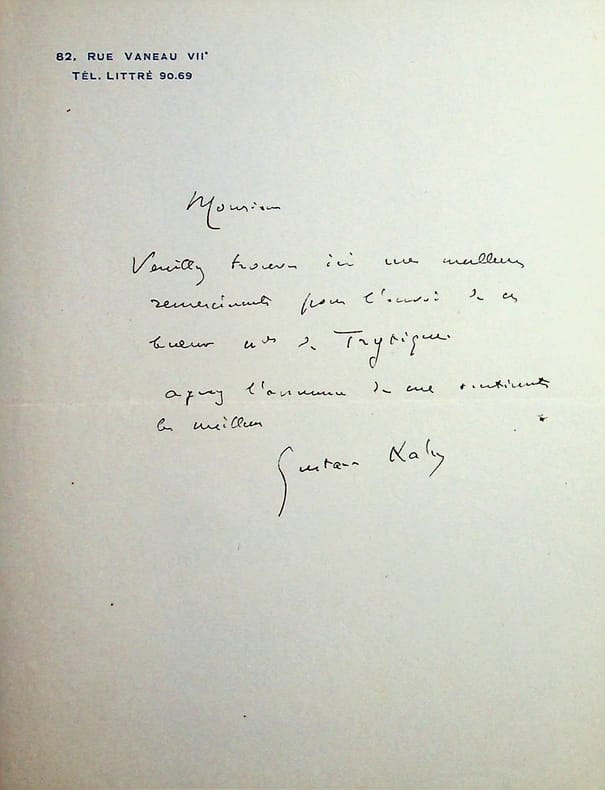 82, RUE VANEAU VIIᵉ
TÉL. LITTRÉ 90.69
Monsieur
Veuillez trouver ici mes meilleurs
remerciements pour l'envoi de ces
de
agréez l'assurance de mes sentiments
les meilleurs
Gustave Kahn